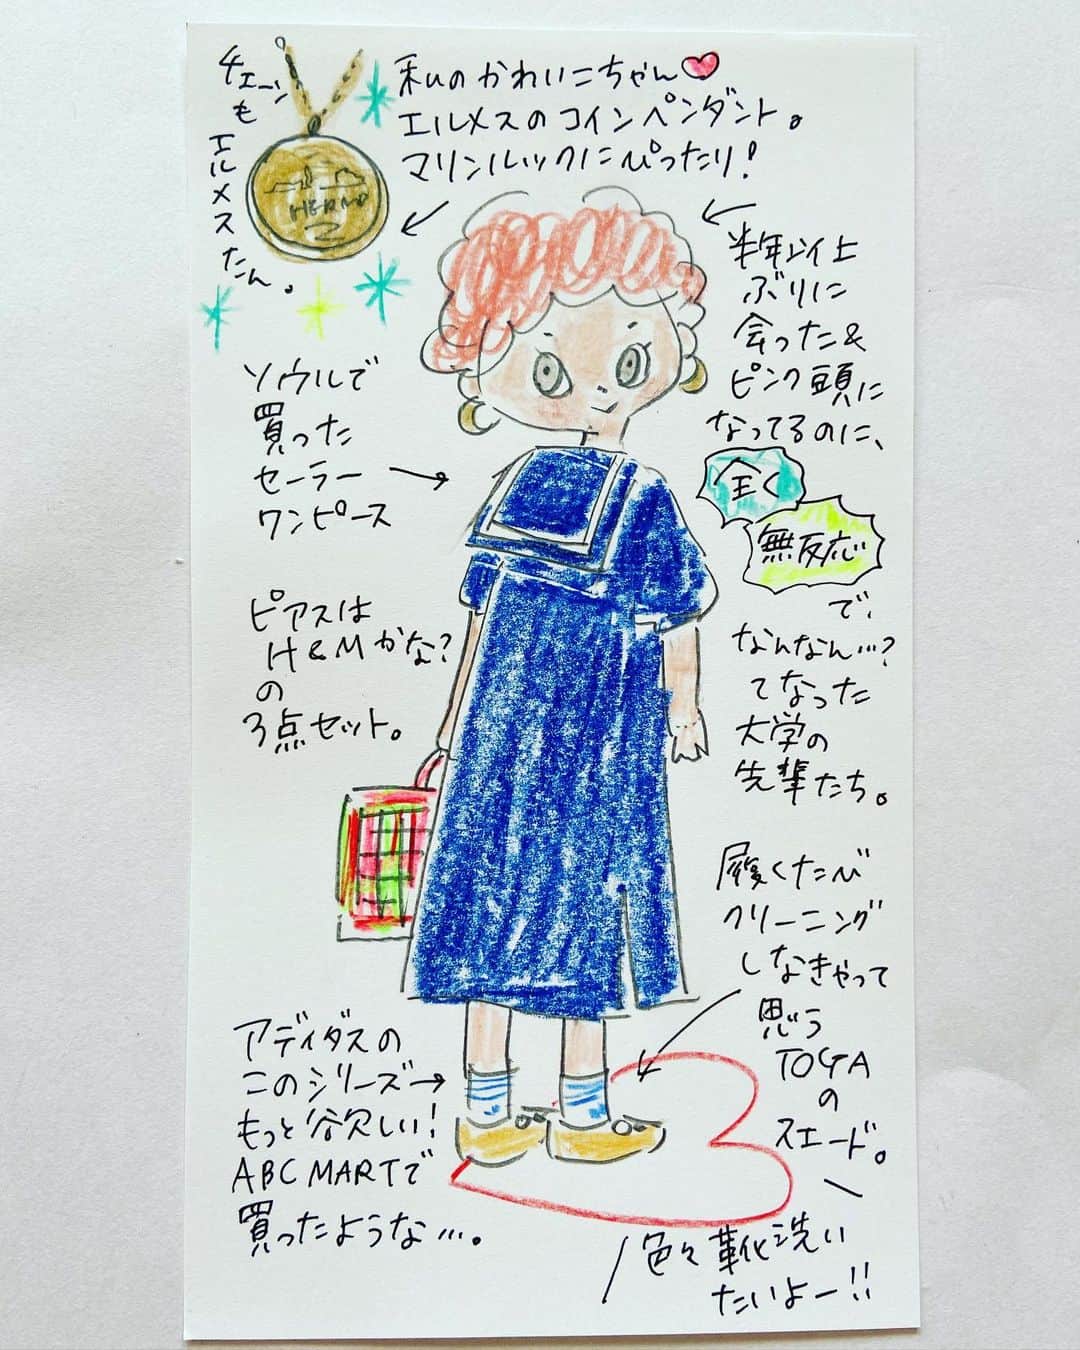 チェーン
も
エルメスたん。
HERM
私のかわいこちゃん
エルメスのコインペンダント。
マリンルックにぴったり!
半年以上
ぶりに
会った&
ピンク頭に
なってるのに、
全く
無反応
で、
なんなん…?
てなった
大学の
先輩たち。
ソウルで
買った
セーラー
ワンピース
ピアスは
H&Mかな?
の
3点セット。
履くたび
クリーニング
しなきゃって
思う
TOGA
の
スエード。
色々靴洗い
たいよー!!
アディダスの
このシリーズ
もっと欲しい!
ABC MARTで
買ったような…。